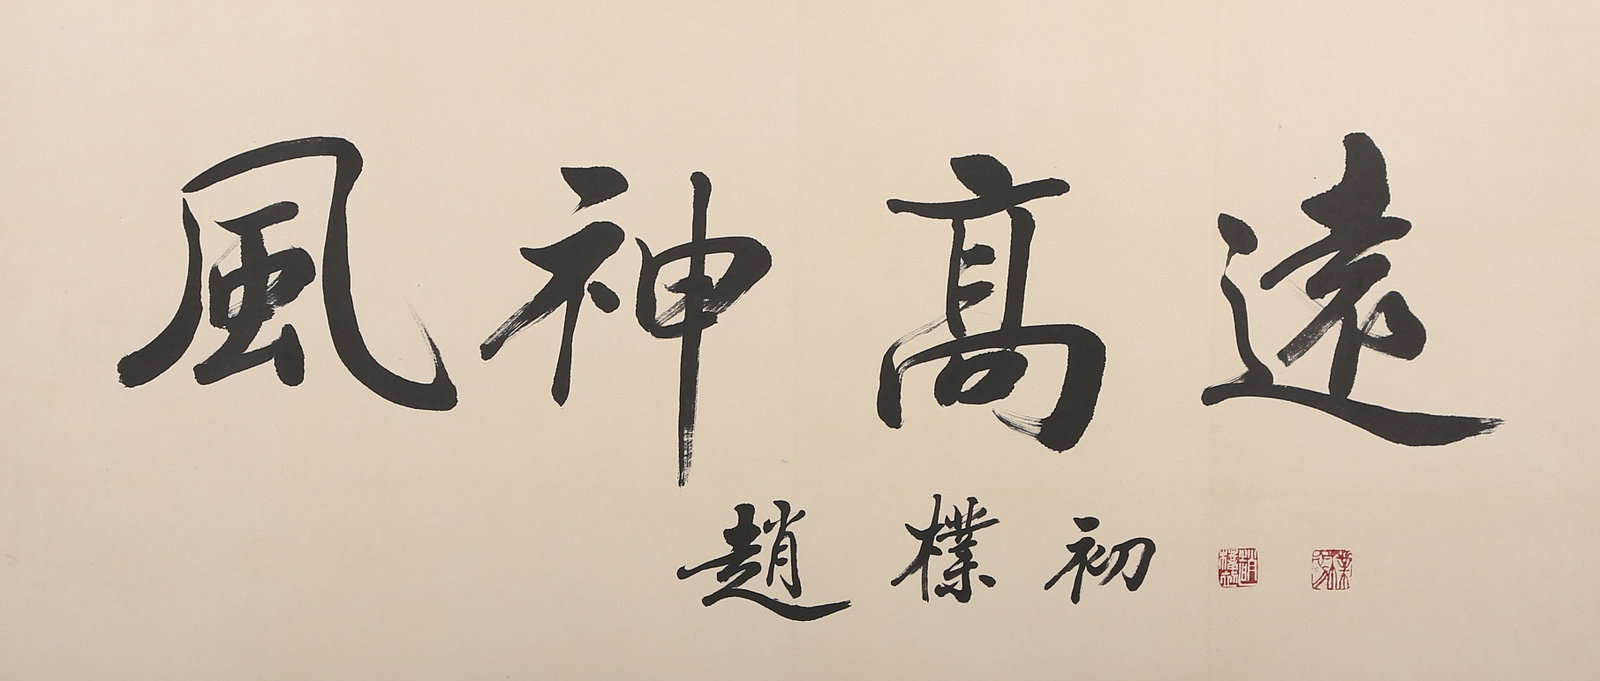 風神髙遠
趙樸初